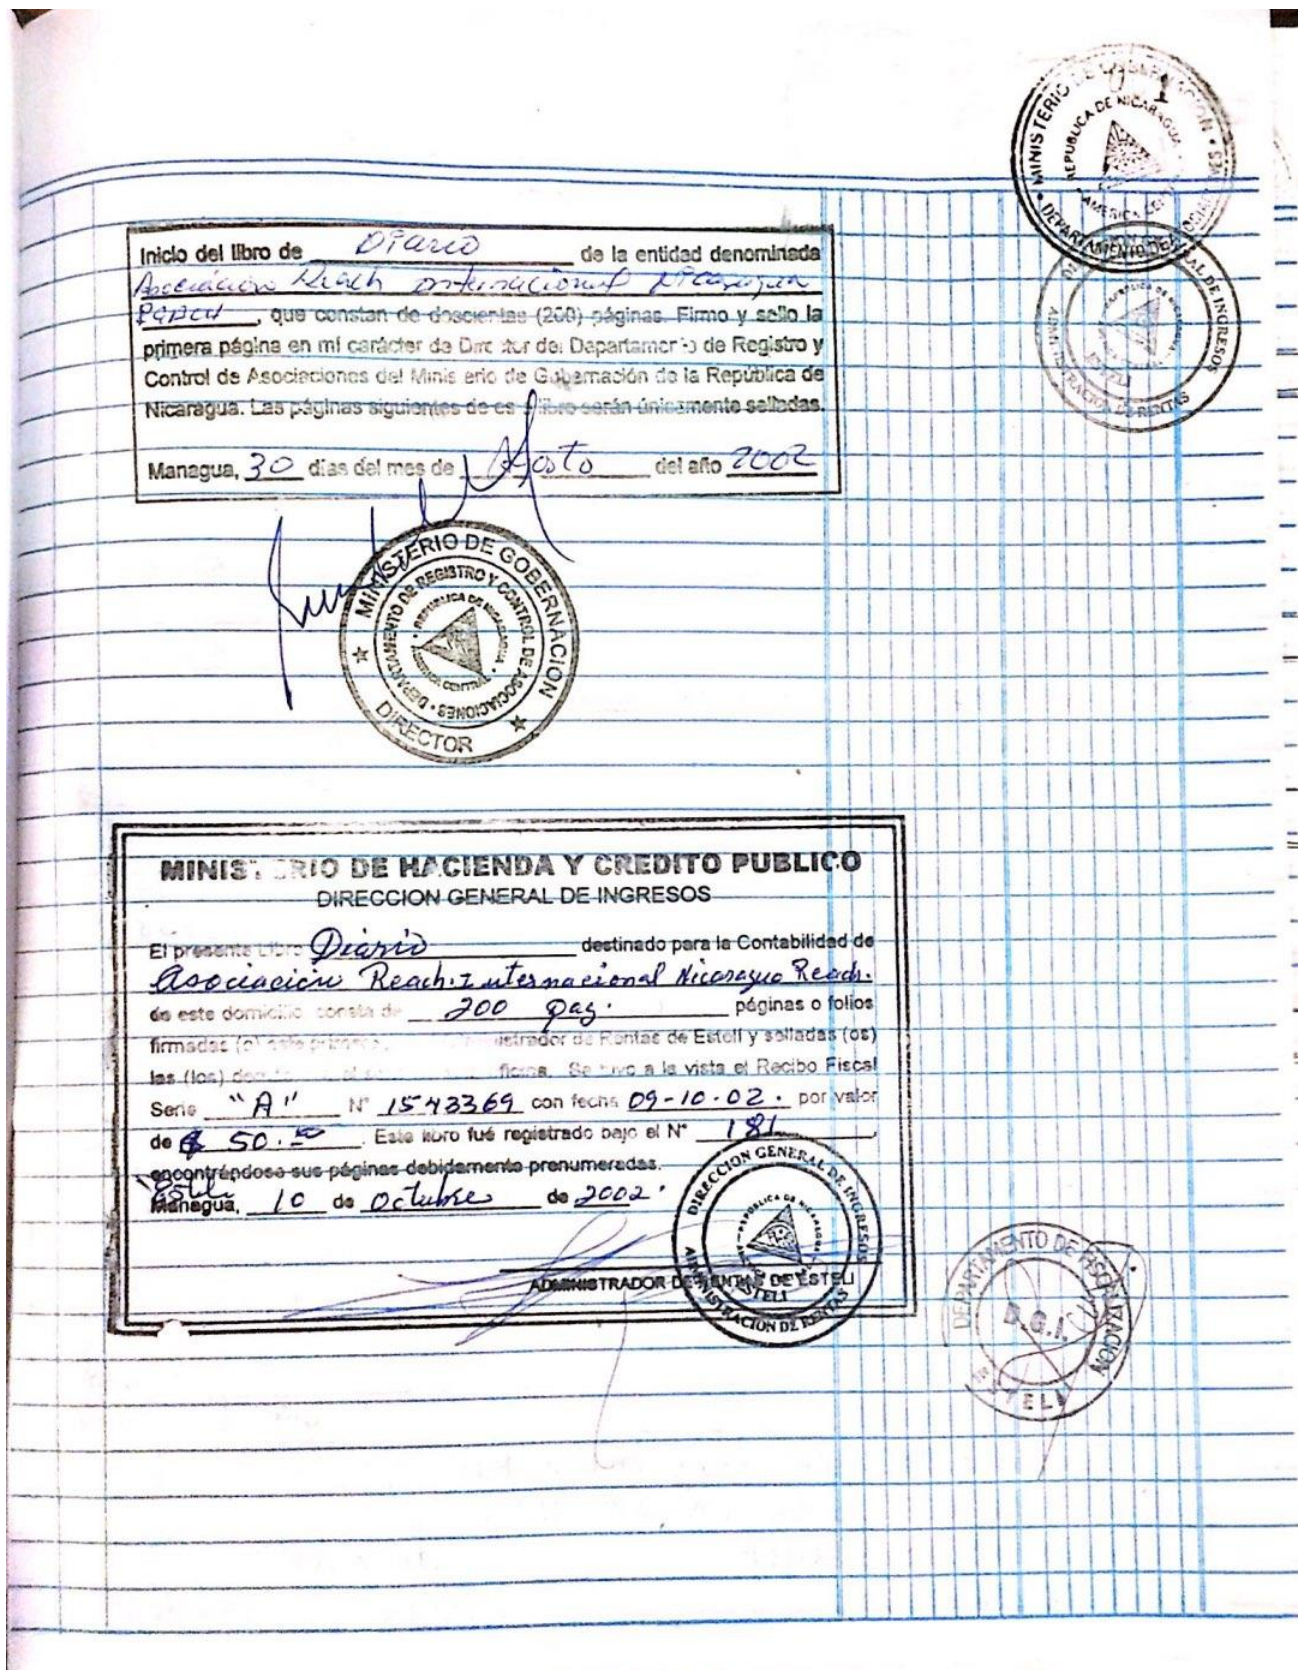 MINISTERIO DE GOBERNACION
REPUBLICA DE NICARAGUA
AMERICA CENTRAL
DEPARTAMENTO DE
DIRECCION GENERAL DE INGRESOS
ESTELI
ADMINISTRACION DE RENTAS
Inicio del libro de Diario de la entidad denominada
Asociación Reach Internacional Nicaragua
REACH, que constan de doscientas (200) páginas. Firmo y sello la
primera página en mi carácter de Director del Departamento de Registro y
Control de Asociaciones del Ministerio de Gobernación de la República de
Nicaragua. Las páginas siguientes de este libro serán únicamente selladas.
Managua, 30 días del mes de Agosto del año 2002
MINISTERIO DE GOBERNACION
DEPARTAMENTO DE REGISTRO Y CONTROL DE ASOCIACIONES
REPUBLICA DE NICARAGUA
AMERICA CENTRAL
DIRECTOR
MINISTERIO DE HACIENDA Y CREDITO PUBLICO
DIRECCION GENERAL DE INGRESOS
El presente Libro Diario destinado para la Contabilidad de
Asociación Reach. Internacional Nicaragua Reach.
de este domicilio consta de 200 pag. páginas o folios
firmadas (o) Administrador de Rentas de Estelí y selladas (os)
las (los) Se tuvo a la vista el Recibo Fiscal
Serie "A" N° 1543369 con fecha 09-10-02. por valor
de $ 50.00. Este libro fué registrado bajo el N° 181,
encontrándose sus páginas debidamente prenumeradas.
Estelí
Managua, 10 de Octubre de 2002.
ADMINISTRADOR DE RENTAS DE ESTELI
DIRECCION GENERAL DE INGRESOS
REPUBLICA DE NICARAGUA
ESTELI
ADMINISTRACION DE RENTAS
DEPARTAMENTO DE FISCALIZACION
D.G.I.
ESTELI